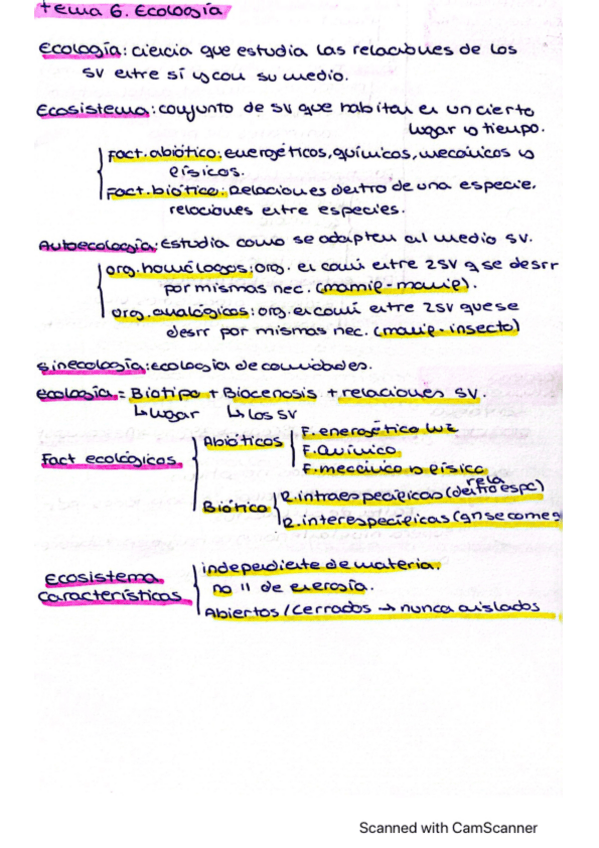 tema 6. Ecología
Ecología: ciencia que estudia las relaciones de los
SV entre sí y con su medio.
Ecosistema: conjunto de SV que habitan en un cierto
lugar y tiempo.
Fact. abiótico: energéticos, químicos, mecánicos y
físicos.
Fact. biótico: Relaciones dentro de una especie,
relaciones entre especies.
Autoecología: Estudia como se adapten al medio SV.
org. homólogos: org. en comú entre 2SV q se desrr
por mismas nec. (mamif - mamif).
org. analógicos: org. en comú entre 2SV que se
desrr por mismas nec. (mamif - insecto)
Sinecología: ecología de comunidades.
ecología = Biotipo + Biocenosis + relaciones SV.
↳ lugar ↳ los SV
Fact ecológicos
Abióticos
F. energético luz
F. Químico
F. mecánico y físico
Biótico
R. intraespecíficas (dentro espc) rela
R. interespecíficas (qn se come q
Ecosistema
características
independiente de materia.
no 11 de energía.
Abiertos / Cerrados → nunca aislados
Scanned with CamScanner